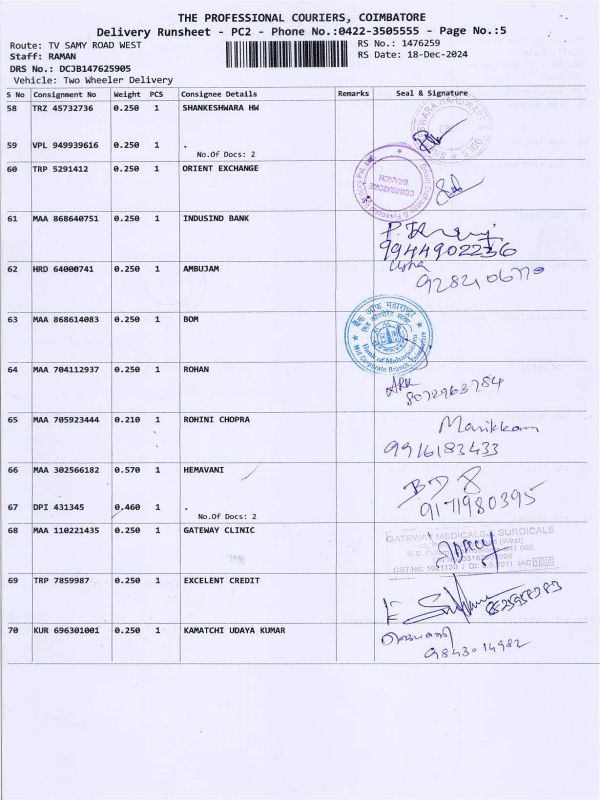 THE PROFESSIONAL COURIERS, COIMBATORE
Delivery Runsheet - PC2 - Phone No.:0422-3505555 - Page No.:5
Route: TV SAMY ROAD WEST
RS No.: 1476259
Staff: RAMAN
RS Date: 18-Dec-2024
DRS No.: DCJB147625905
Vehicle: Two Wheeler Delivery
S No Consignment No Weight PCS Consignee Details Remarks Seal & Signature
58 TRZ 45732736 0.250 1 SHANKESHWARA HW
59 VPL 949939616 0.250 1 .
No.Of Docs: 2
60 TRP 5291412 0.250 1 ORIENT EXCHANGE
COIMBATORE
BRANCH
61 MAA 868640751 0.250 1 INDUSIND BANK
9944902236
62 HRD 64000741 0.250 1 AMBUJAM
Usha
63 MAA 868614083 0.250 1 BOM
बैंक ऑफ महाराष्ट्र
Bank of Maharashtra
Mid Corporate Branch, Coimbatore
64 MAA 704112937 0.250 1 ROHAN
8072963784
65 MAA 705923444 0.210 1 ROHINI CHOPRA
Manikkam
9916183433
66 MAA 302566182 0.570 1 HEMAVANI
67 DPI 431345 0.460 1 .
No.Of Docs: 2
9171980395
68 MAA 110221435 0.250 1 GATEWAY CLINIC
GATEWAY MEDICALS & SURGICALS
69 TRP 7859987 0.250 1 EXCELENT CREDIT
70 KUR 696301001 0.250 1 KAMATCHI UDAYA KUMAR
9843014982